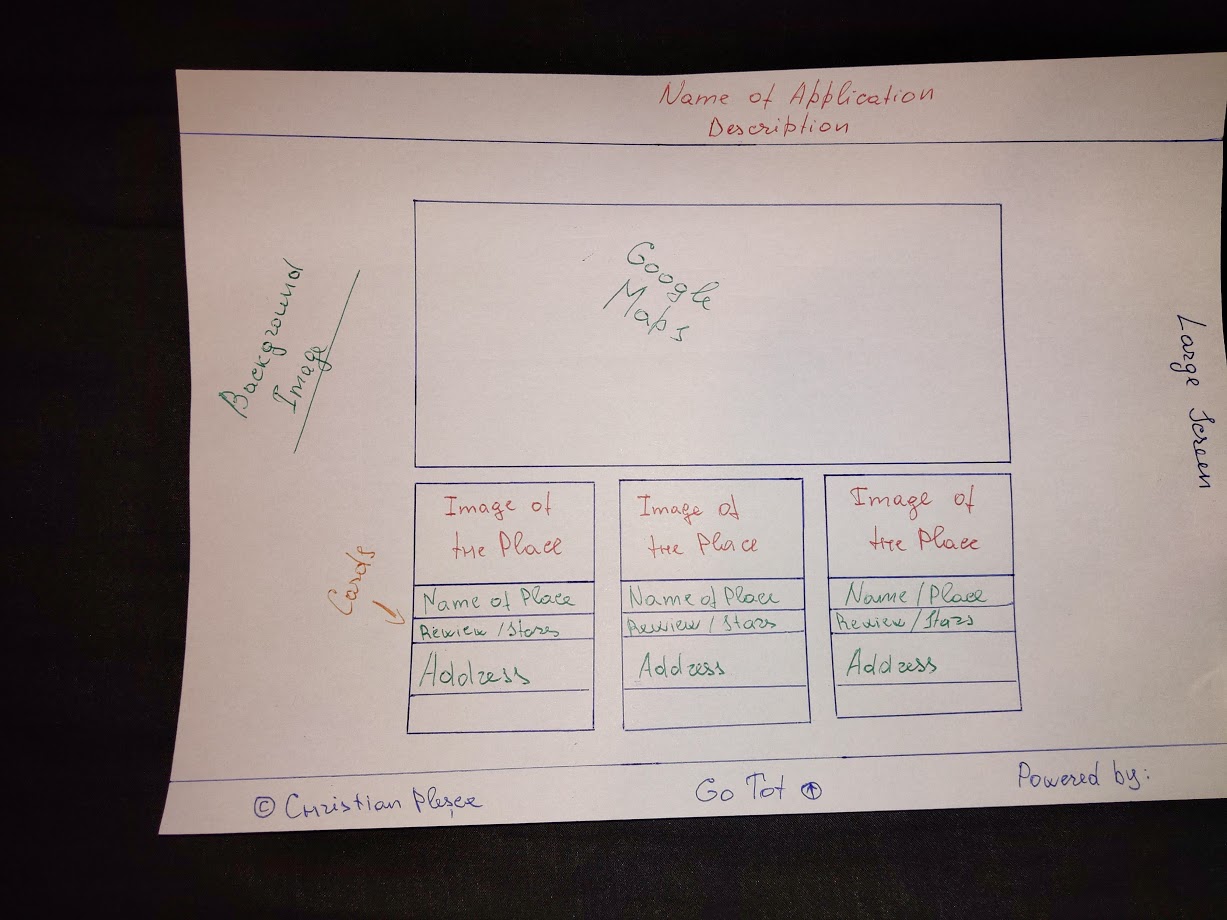 Name of Application
Description
Google
Maps
Background
Image
Large Screen
Cards
Image of
the Place
Name of Place
Review / Stars
Address
Image of
the Place
Name of Place
Review / Stars
Address
Image of
the Place
Name / Place
Review / Stars
Address
© Christian Pleşca
Go Tot ↑
Powered by: